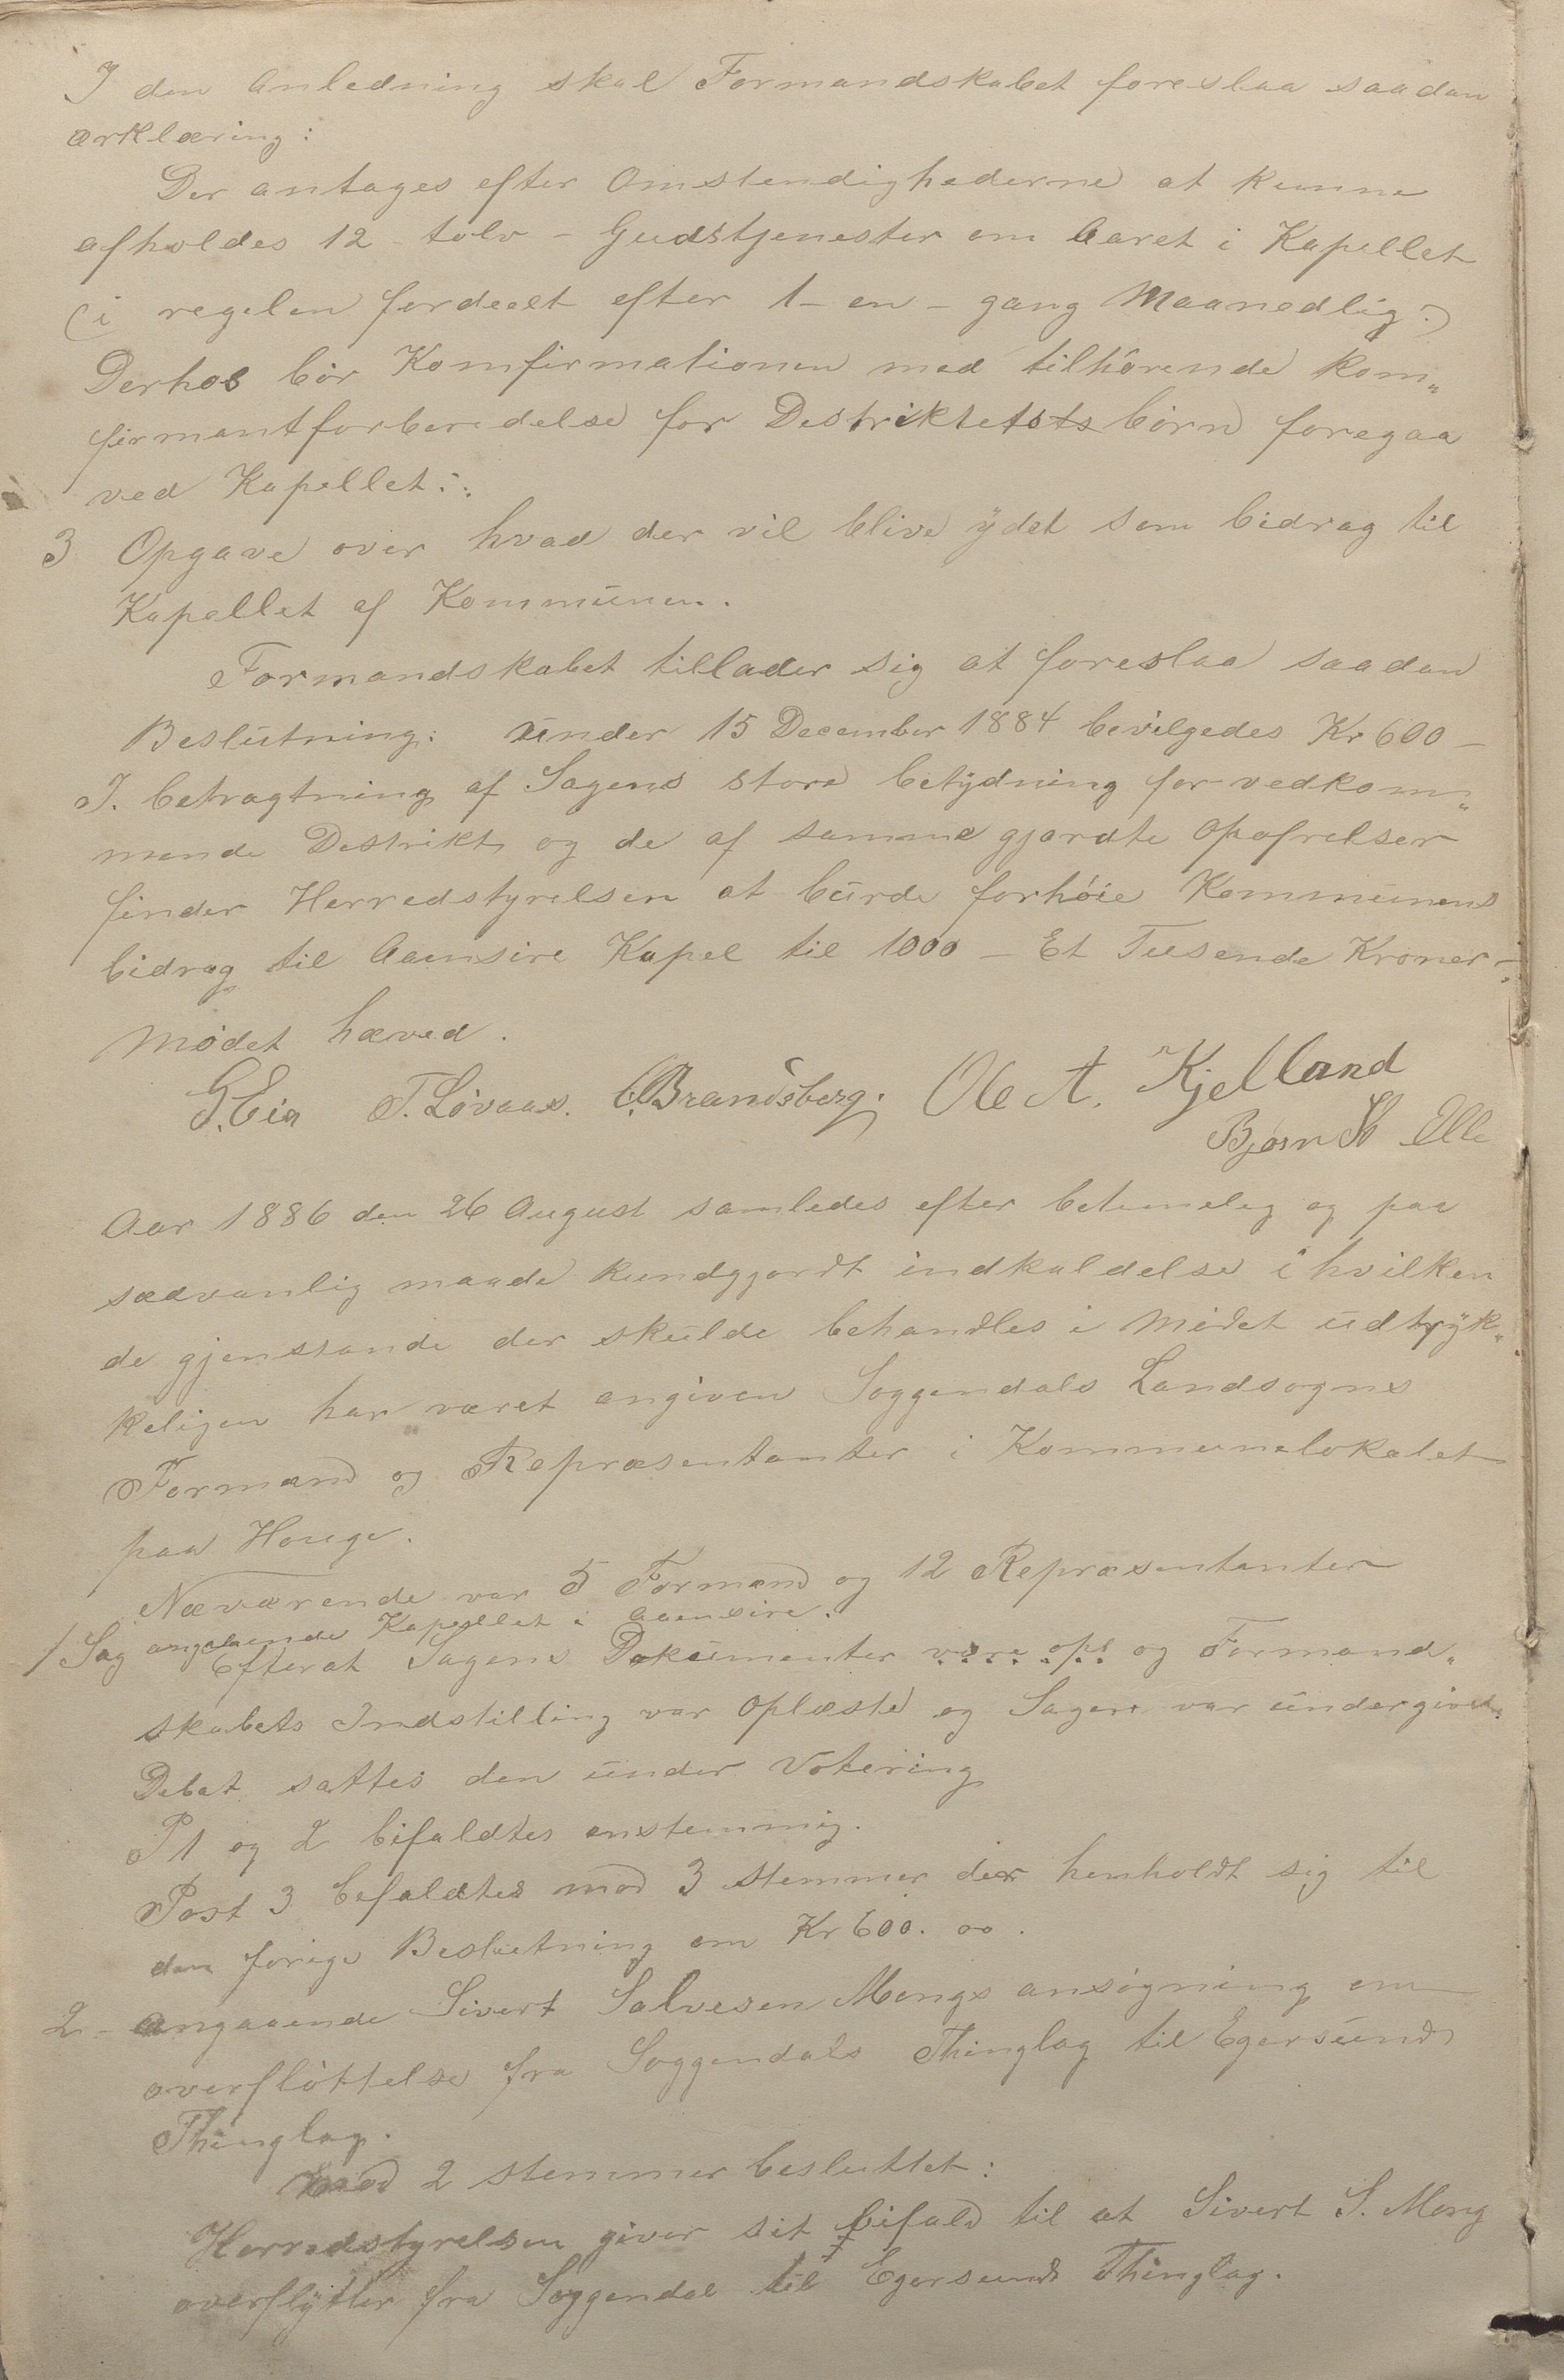 I den Anledning skal Formandskabet foreslaa saadan
ærklæring:
Der antages efter Omstendighederne at kunne
afholdes 12 - tolv - Gudstjenester om Aaret i Kapellet
(i regelen fordeelt efter 1 - en - gang Maanedlig.)
Derhos bör Komfirmationen med tilhörende kom„
firmantforberedelse for Destriktets börn foregaa
ved Kapellet:.
3 Opgave over hvad der vil blive ÿdet som bidrag til
Kapellet af Kommunen.
Formandskabet tillader sig at foreslaa saadan
Beslutning: Under 15 December 1884 bevilgedes Kr 600 -
I. betragtning af Sagens store betÿdning for vedkom„
mende Destrikt og de af samme gjordte Opofrelser
finder Herredstyrelsen at burde forhöie Kommunens
bidrag til Aaensire Kapel til 1000 - Et Tusende Kroner -.
Mödet hæved.
G. Eia T. Lövaas. C. Brandsberg. Ole A. Kjelland
Bjørn Elle
Aar 1886 den 26 August samledes efter betimelig og paa
sædvanlig maade kundgjordt indkaldelse i hvilken
de gjenstande der skulde behandles i Mödet udtrÿk„
keligen har været angiven Soggendals Landsogns
Formænd og Repræsentanter i Kommunelokalet
paa Houge.
Næværende var 5 Formænd og 12 Repræsentanter
1/ Sag angaaende Kapellet i Aaensire.
Efterat Sagens Dokumenter vare op og Formand„
skabets Indstilling var Oplæste og Sagen var undergivet
Debat sattes den under Votering
P 1 og 2 bifaldtes enstemmig.
Post 3 befaldtes mod 3 Stemmer der henholdt sig til
den forige Beslutning om Kr 600. oo.
2 - Angaaende Sivert Salvesen Mongs ansögning om
overflöttelse fra Soggendals Thinglag til Egersunds
Thinglag.
Mod 2 stemmer besluttet:
Herredstyrelsen giver sit bifald til at Sivert S. Mong
overflÿtter fra Soggendal til Egersunds Thinglag.